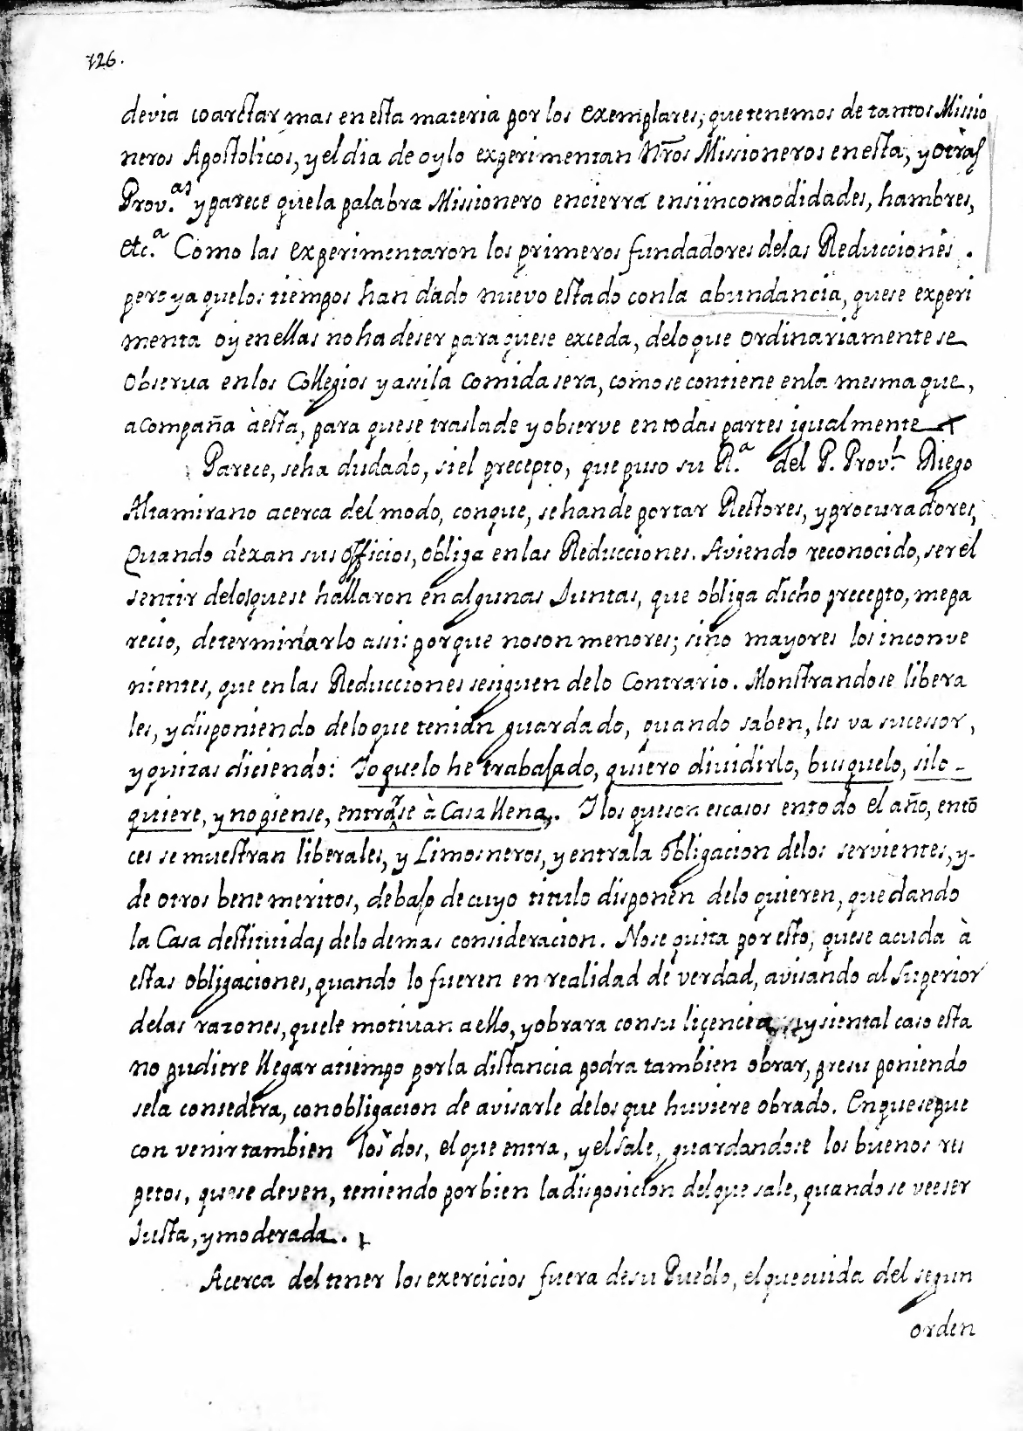 126.
devia coarctar mas en esta materia por los exemplares, que tenemos de tantos Missio
neros Apostolicos, y el dia de oylo experimentan Nros Missioneros en esta, y otras
Prov.as y parece que la palabra Missionero encierra ensi incomodidades, hambres,
etc.a Como las experimentaron los primeros fundadores de las Reducciones.
pero ya que los tiempos han dado nuevo estado con la abundancia, que se experi
menta oy en ellas no ha de ser para que se exceda, de lo que ordinariamente se
observa en los Collegios y assi la comida sera, como se contiene en la mesma que,
acompaña à esta, para que se traslade y observe en todas partes igualmente
Parece, se ha dudado, si el precepto, que puso su R.a del P. Prov.l Diego
Altamirano acerca del modo, con que, se han de portar Rectores, y procuradores,
Quando dexan sus officios, obliga en las Reducciones. Aviendo reconocido, ser el
sentir de los que se hallaron en algunas Juntas, que obliga dicho precepto, me pa
recio, determinarlo assi: porque no son menores; sino mayores los inconve
nientes, que en las Reducciones se siguen de lo Contrario. Monstrandose libera
les, y disponiendo de lo que tenian guardado, quando saben, les va sucessor,
y quizas diciendo: Yo que lo he trabajado, quiero dividirlo, busquelo, si lo
quiere, y no piense, entrarse à Casa llena. Y los que son escasos en todo el año, entõ
ces se muestran liberales, y Limosneros, y entra la obligacion de los servientes, y
de otros benemeritos, debajo de cuyo titulo disponen de lo quieren, quedando
la Casa destituida de lo demas consideracion. No se quita por esto, que se acuda à
estas obligaciones, quando lo fueren en realidad de verdad, avisando al Superior
de las razones, que le motivan a ello, y obrara con su licencia, y si en tal caso esta
no pudiere llegar a tiempo por la distancia podra tambien obrar, presuponiendo
se la consedera, con obligacion de avisarle de los que huviere obrado. En que se que
con venir tambien los dos, el que entra, y el sale, guardandose los buenos res
petos, que se deven, teniendo por bien la disposicion del que sale, quando se vee ser
Justa, y moderada.
Acerca del tener los exercicios fuera de su Pueblo, el que cuida del segun
orden